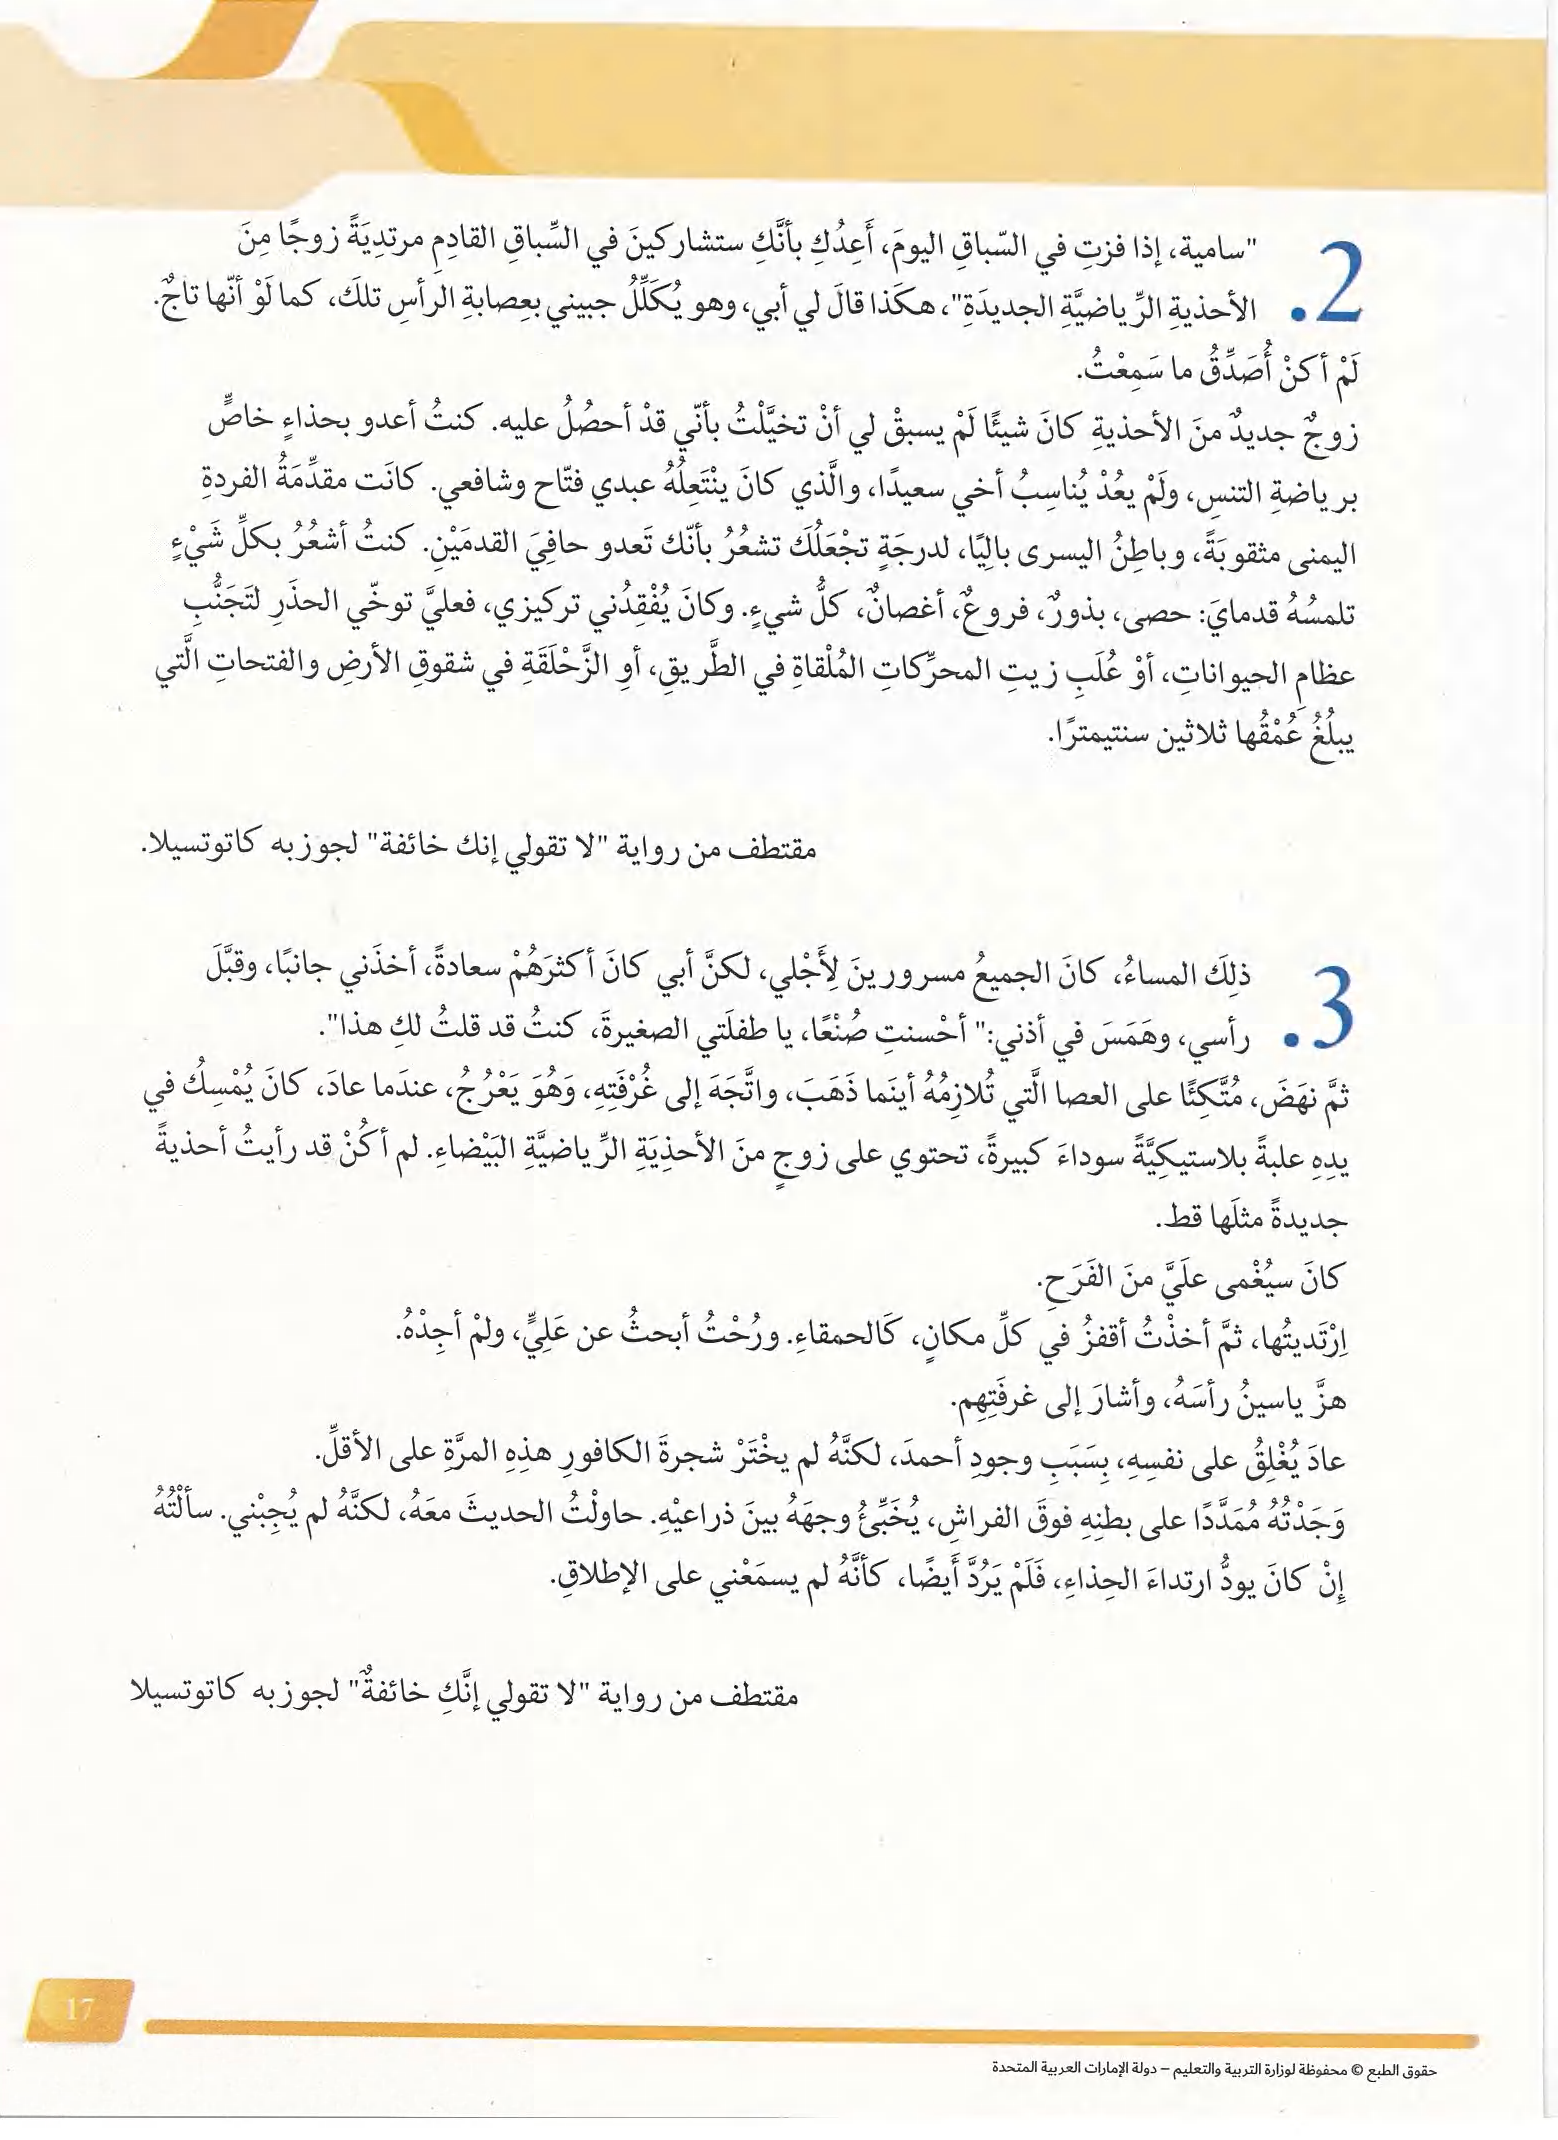 2. "سامية، إذا فزتِ في السّباقِ اليومَ، أَعِدُكِ بأنَّكِ ستشاركينَ في السِّباقِ القادِمِ مرتدِيَةً زوجًا مِنَ
الأحذيةِ الرِّياضيَّةِ الجديدَةِ"، هكَذا قالَ لي أبي، وهو يُكَلِّلُ جبيني بعِصابةِ الرأسِ تلكَ، كما لَوْ أنّها تاجٌ.
لَمْ أكنْ أُصَدِّقُ ما سَمِعْتُ.
زوجٌ جديدٌ منَ الأحذيةِ كانَ شيئًا لَمْ يسبقْ لي أنْ تخيَّلْتُ بأنّي قدْ أحصُلُ عليه. كنتُ أعدو بحذاءٍ خاصٍّ
برياضةِ التنسِ، ولَمْ يعُدْ يُناسِبُ أخي سعيدًا، والَّذي كانَ ينْتَعِلُهُ عبدي فتّاح وشافعي. كانَت مقدِّمَةُ الفردةِ
اليمنى مثقوبَةً، وباطِنُ اليسرى بالِيًا، لدرجَةٍ تجْعَلُكَ تشعُرُ بأنّك تَعدو حافِيَ القدمَيْنِ. كنتُ أشعُرُ بكلِّ شَيْءٍ
تلمسُهُ قدمايَ: حصى، بذورٌ، فروعٌ، أغصانٌ، كلُّ شيءٍ. وكانَ يُفْقِدُني تركيزي، فعليَّ توخّي الحذَرِ لتَجَنُّبِ
عظامِ الحيواناتِ، أوْ عُلَبِ زيتِ المحرِّكاتِ المُلْقاةِ في الطَّريقِ، أوِ الزَّحْلَقَةِ في شقوقِ الأرضِ والفتحاتِ الَّتي
يبلُغُ عُمْقُها ثلاثين سنتيمترًا.
مقتطف من رواية "لا تقولي إنك خائفة" لجوزبه كاتوتسيلا.
3. ذلِكَ المساءُ، كانَ الجميعُ مسرورينَ لِأَجْلي، لكنَّ أبي كانَ أكثرَهُمْ سعادةً، أخذَني جانبًا، وقبَّلَ
رأسي، وهَمَسَ في أذني:" أحْسنتِ صُنْعًا، يا طفلَتي الصغيرةَ، كنتُ قد قلتُ لكِ هذا".
ثمَّ نهَضَ، مُتَّكِئًا على العصا الَّتي تُلازِمُهُ أينَما ذَهَبَ، واتَّجَهَ إلى غُرْفَتِهِ، وَهُوَ يَعْرُجُ، عندَما عادَ، كانَ يُمْسِكُ في
يدِهِ علبةً بلاستيكِيَّةً سوداءَ كبيرةً، تحتوي على زوجٍ منَ الأحذِيَةِ الرِّياضيَّةِ البَيْضاءِ. لم أكُنْ قد رأيتُ أحذيةً
جديدةً مثلَها قط.
كانَ سيُغْمى علَيَّ منَ الفَرَحِ.
اِرْتَديتُها، ثمَّ أخذْتُ أقفزُ في كلِّ مكانٍ، كَالحمقاءِ. ورُحْتُ أبحثُ عن عَلِيٍّ، ولمْ أجِدْهُ.
هزَّ ياسينُ رأسَهُ، وأشارَ إلى غرفَتِهِم.
عادَ يُغْلِقُ على نفسِهِ، بِسَبَبِ وجودِ أحمدَ، لكنَّهُ لم يخْتَرْ شجرةَ الكافورِ هذِهِ المرَّةِ على الأقلِّ.
وَجَدْتُهُ مُمَدَّدًا على بطنِهِ فوقَ الفراشِ، يُخَبِّئُ وجهَهُ بينَ ذراعيْهِ. حاولْتُ الحديثَ معَهُ، لكنَّهُ لم يُجِبْني. سألْتُهُ
إِنْ كانَ يودُّ ارتداءَ الحِذاءِ، فَلَمْ يَرُدَّ أَيضًا، كأنَّهُ لم يسمَعْني على الإطلاقِ.
مقتطف من رواية "لا تقولي إنَّكِ خائفةٌ" لجوزبه كاتوتسيلا
17
حقوق الطبع © محفوظة لوزارة التربية والتعليم – دولة الإمارات العربية المتحدة